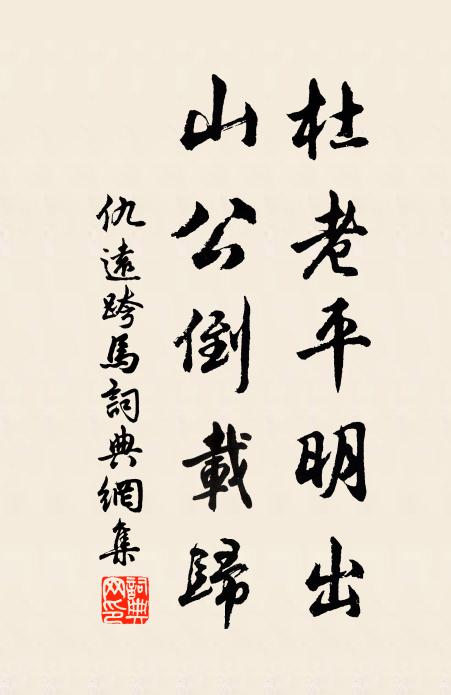 杜老平明出
山公倒載歸
仇遠跨馬詞典網集
詞典網印